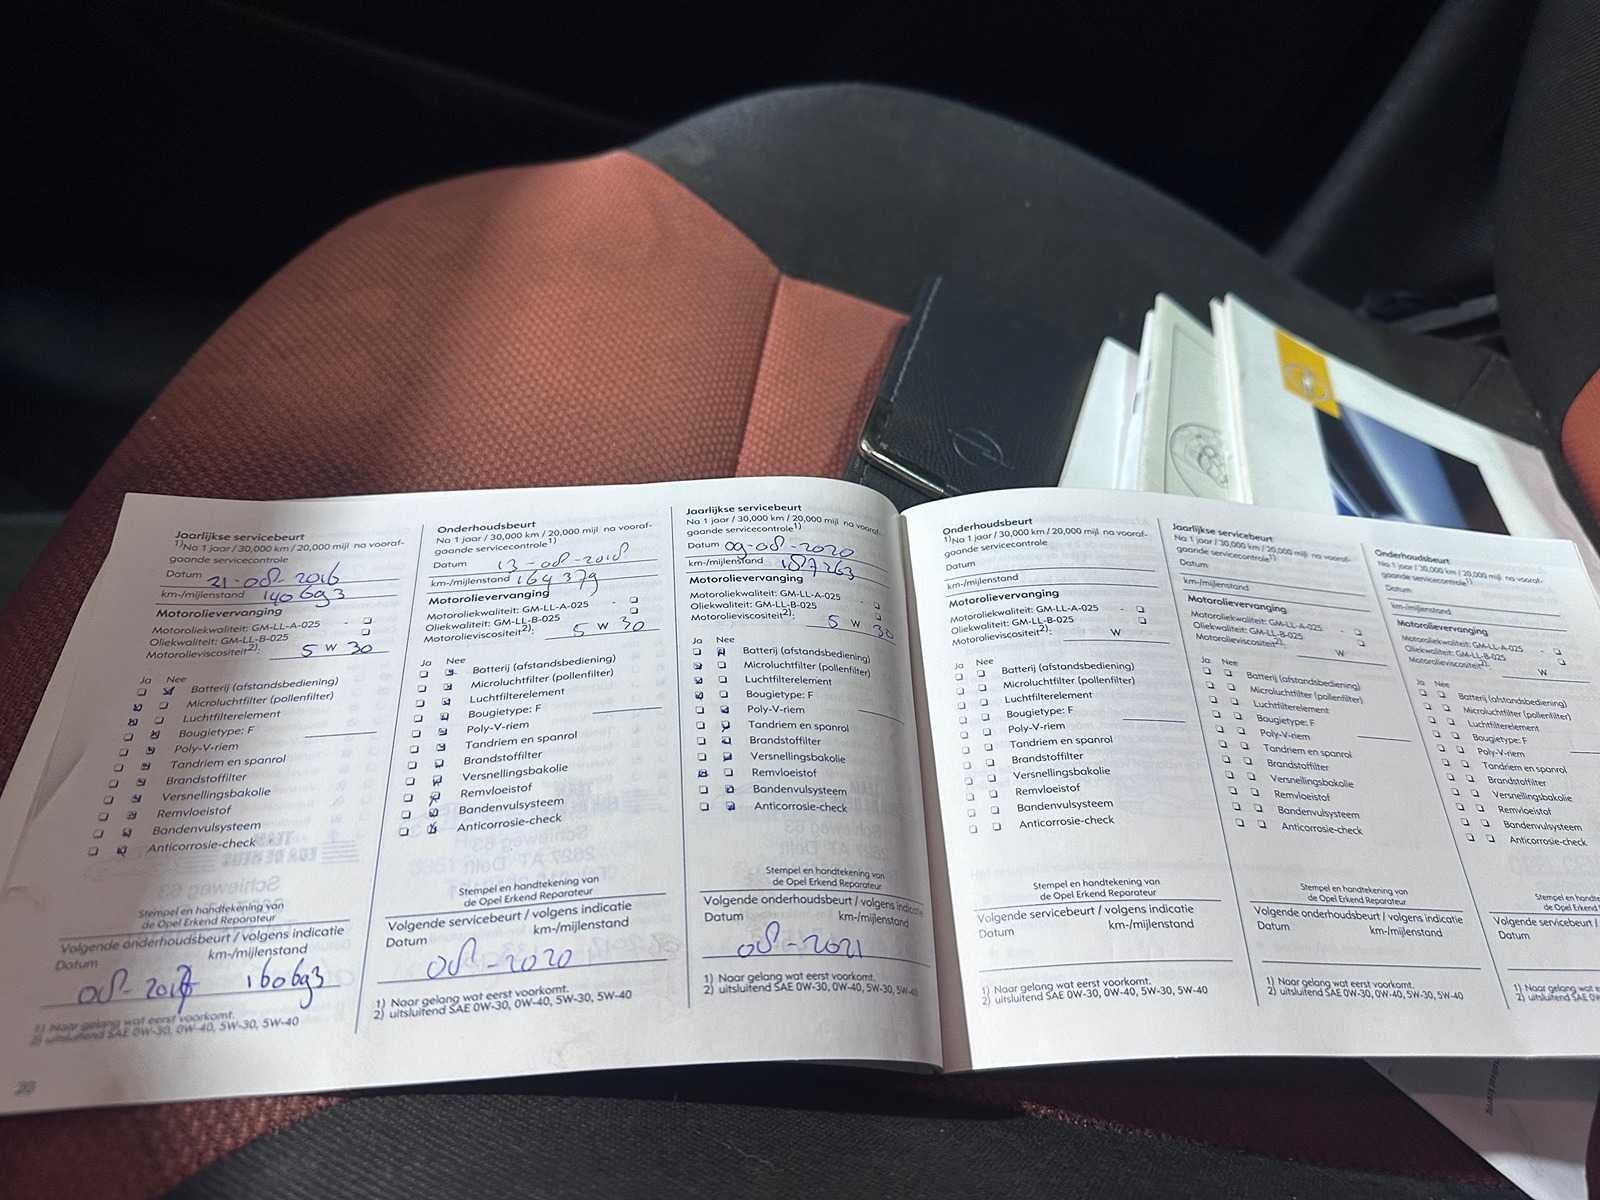 Jaarlijkse servicebeurt
1)Na 1 jaar / 30,000 km / 20,000 mijl na vooraf-
gaande servicecontrole
Datum 21-08-2016
km-/mijlenstand 140693
Motorolievervanging
Motoroliekwaliteit: GM-LL-A-025 -
Oliekwaliteit: GM-LL-B-025
Motorolieviscositeit2): 5 W 30
Ja Nee
Batterij (afstandsbediening)
Microluchtfilter (pollenfilter)
Luchtfilterelement
Bougietype: F
Poly-V-riem
Tandriem en spanrol
Brandstoffilter
Versnellingsbakolie
Remvloeistof
Bandenvulsysteem
Anticorrosie-check
Stempel en handtekening van
de Opel Erkend Reparateur
Volgende onderhoudsbeurt / volgens indicatie
Datum km-/mijlenstand
08-2017 160693
1) Naar gelang wat eerst voorkomt.
2) uitsluitend SAE 0W-30, 0W-40, 5W-30, 5W-40
28
Onderhoudsbeurt
Na 1 jaar / 30,000 km / 20,000 mijl na vooraf-
gaande servicecontrole1)
Datum 13-08-2018
km-/mijlenstand 164379
Motorolievervanging
Motoroliekwaliteit: GM-LL-A-025 -
Oliekwaliteit: GM-LL-B-025
Motorolieviscositeit2): 5 W 30
Ja Nee
Batterij (afstandsbediening)
Microluchtfilter (pollenfilter)
Luchtfilterelement
Bougietype: F
Poly-V-riem
Tandriem en spanrol
Brandstoffilter
Versnellingsbakolie
Remvloeistof
Bandenvulsysteem
Anticorrosie-check
Stempel en handtekening van
de Opel Erkend Reparateur
Volgende servicebeurt / volgens indicatie
Datum km-/mijlenstand
08-2020
1) Naar gelang wat eerst voorkomt.
2) uitsluitend SAE 0W-30, 0W-40, 5W-30, 5W-40
Jaarlijkse servicebeurt
Na 1 jaar / 30,000 km / 20,000 mijl na vooraf-
gaande servicecontrole1)
Datum 09-08-2020
km-/mijlenstand 187263
Motorolievervanging
Motoroliekwaliteit: GM-LL-A-025 -
Oliekwaliteit: GM-LL-B-025
Motorolieviscositeit2): 5 W 30
Ja Nee
Batterij (afstandsbediening)
Microluchtfilter (pollenfilter)
Luchtfilterelement
Bougietype: F
Poly-V-riem
Tandriem en spanrol
Brandstoffilter
Versnellingsbakolie
Remvloeistof
Bandenvulsysteem
Anticorrosie-check
Stempel en handtekening van
de Opel Erkend Reparateur
Volgende onderhoudsbeurt / volgens indicatie
Datum km-/mijlenstand
08-2021
1) Naar gelang wat eerst voorkomt.
2) uitsluitend SAE 0W-30, 0W-40, 5W-30, 5W-40
Onderhoudsbeurt
1)Na 1 jaar / 30,000 km / 20,000 mijl na vooraf-
gaande servicecontrole
Datum
km-/mijlenstand
Motorolievervanging
Motoroliekwaliteit: GM-LL-A-025 -
Oliekwaliteit: GM-LL-B-025
Motorolieviscositeit2): W
Ja Nee
Batterij (afstandsbediening)
Microluchtfilter (pollenfilter)
Luchtfilterelement
Bougietype: F
Poly-V-riem
Tandriem en spanrol
Brandstoffilter
Versnellingsbakolie
Remvloeistof
Bandenvulsysteem
Anticorrosie-check
Stempel en handtekening van
de Opel Erkend Reparateur
Volgende servicebeurt / volgens indicatie
Datum km-/mijlenstand
1) Naar gelang wat eerst voorkomt.
2) uitsluitend SAE 0W-30, 0W-40, 5W-30, 5W-40
Jaarlijkse servicebeurt
Na 1 jaar / 30,000 km / 20,000 mijl na vooraf-
gaande servicecontrole1)
Datum
km-/mijlenstand
Motorolievervanging
Motoroliekwaliteit: GM-LL-A-025 -
Oliekwaliteit: GM-LL-B-025
Motorolieviscositeit2): W
Ja Nee
Batterij (afstandsbediening)
Microluchtfilter (pollenfilter)
Luchtfilterelement
Bougietype: F
Poly-V-riem
Tandriem en spanrol
Brandstoffilter
Versnellingsbakolie
Remvloeistof
Bandenvulsysteem
Anticorrosie-check
Stempel en handtekening van
de Opel Erkend Reparateur
Volgende onderhoudsbeurt / volgens indicatie
Datum km-/mijlenstand
1) Naar gelang wat eerst voorkomt.
2) uitsluitend SAE 0W-30, 0W-40, 5W-30, 5W-40
Onderhoudsbeurt
Na 1 jaar / 30,000 km / 20,000 mijl na vooraf-
gaande servicecontrole1)
Datum
km-/mijlenstand
Motorolievervanging
Motoroliekwaliteit: GM-LL-A-025 -
Oliekwaliteit: GM-LL-B-025
Motorolieviscositeit2): W
Ja Nee
Batterij (afstandsbediening)
Microluchtfilter (pollenfilter)
Luchtfilterelement
Bougietype: F
Poly-V-riem
Tandriem en spanrol
Brandstoffilter
Versnellingsbakolie
Remvloeistof
Bandenvulsysteem
Anticorrosie-check
Stempel en
de Opel Erkend
Volgende servicebeurt /
Datum
1) Naar gelang wat
2) uitsluitend SAE